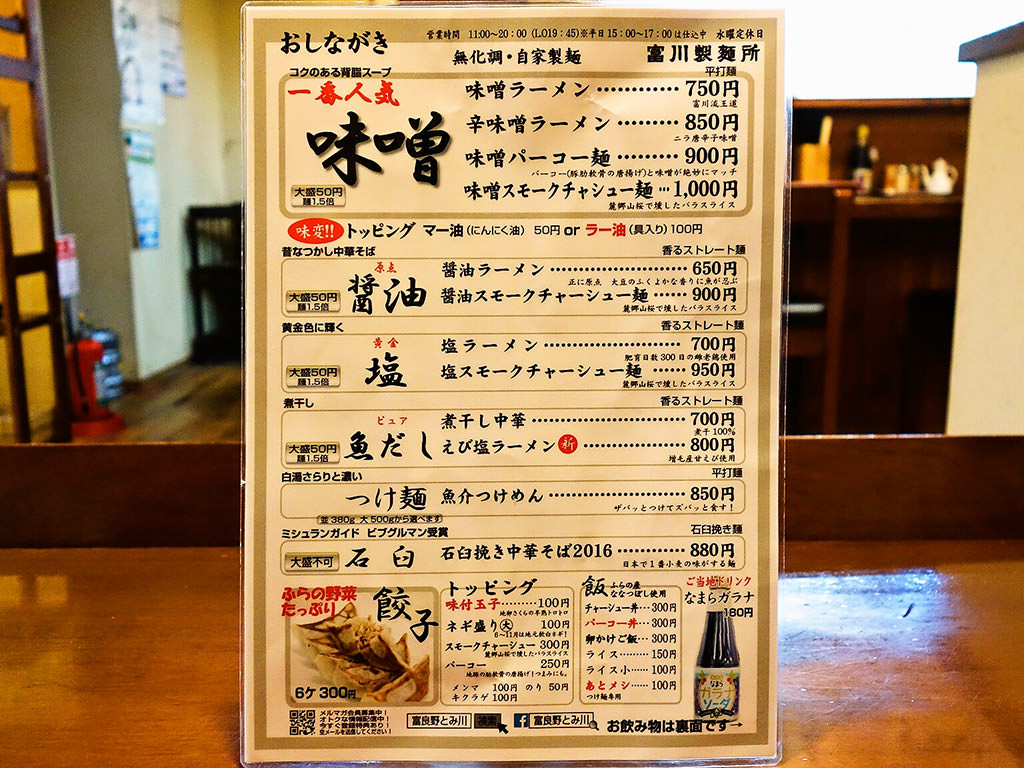 おしながき
営業時間 11:00～20:00 (LO19:45)※平日15:00～17:00は仕込中 水曜定休日
無化調・自家製麺
富川製麺所
コクのある背脂スープ
平打麺
一番人気
味噌
大盛50円
麺1.5倍
味噌ラーメン ………… 750円
富川流王道
辛味噌ラーメン ……… 850円
ニラ唐辛子味噌
味噌パーコー麺 ……… 900円
パーコー(豚肋軟骨の唐揚げ)と味噌が絶妙にマッチ
味噌スモークチャシュー麺 … 1,000円
麓郷山桜で燻したバラスライス
味変!! トッピング マー油(にんにく油) 50円 or ラー油(具入り)100円
昔なつかし中華そば
香るストレート麺
原点
醤油
大盛50円
麺1.5倍
醤油ラーメン ……………… 650円
正に原点 大豆のふくよかな香りに魚が忍ぶ
醤油スモークチャーシュー麺 …… 900円
麓郷山桜で燻したバラスライス
黄金色に輝く
香るストレート麺
黄金
塩
大盛50円
麺1.5倍
塩ラーメン ……………… 700円
肥育日数300日の雌老鶏使用
塩スモークチャーシュー麺 …… 950円
麓郷山桜で燻したバラスライス
煮干し
香るストレート麺
ピュア
魚だし
大盛50円
麺1.5倍
煮干し中華 ……………… 700円
煮干100%
えび塩ラーメン 新 ………… 800円
増毛産甘えび使用
白湯さらりと濃い
平打麺
つけ麺
魚介つけめん ……………… 850円
ザバッとつけてズバッと食す!
並380g 大500gから選べます
ミシュランガイド ビブグルマン受賞
石臼挽き麺
大盛不可
石臼
石臼挽き中華そば2016 ………… 880円
日本で1番小麦の味がする麺
ふらの野菜
たっぷり
餃子
6ケ300円
トッピング
味付玉子 ……… 100円
地卵さくらの半熟トロトロ
ネギ盛り(大) 100円
6～11月は地元軟白ネギ!
スモークチャシュー 300円
麓郷山桜で燻したバラスライス
パーコー 250円
地豚の肋軟骨の唐揚げ!つまみにも。
メンマ 100円 のり 50円
キクラゲ 100円
飯 ふらの産
ななつぼし使用
チャーシュー丼 … 300円
パーコー丼 … 300円
卵かけご飯 … 300円
ライス ……… 150円
ライス小 …… 100円
あとメシ …… 100円
つけ麺専用
ご当地ドリンク
なまらガラナ
180円
なまら
ガラナ
ソーダ
メルマガ会員募集中!
オトクな情報配信中!
今すぐ登録特典あり!
空メールを送信してください!
富良野とみ川 検索
f 富良野とみ川
お飲み物は裏面です→